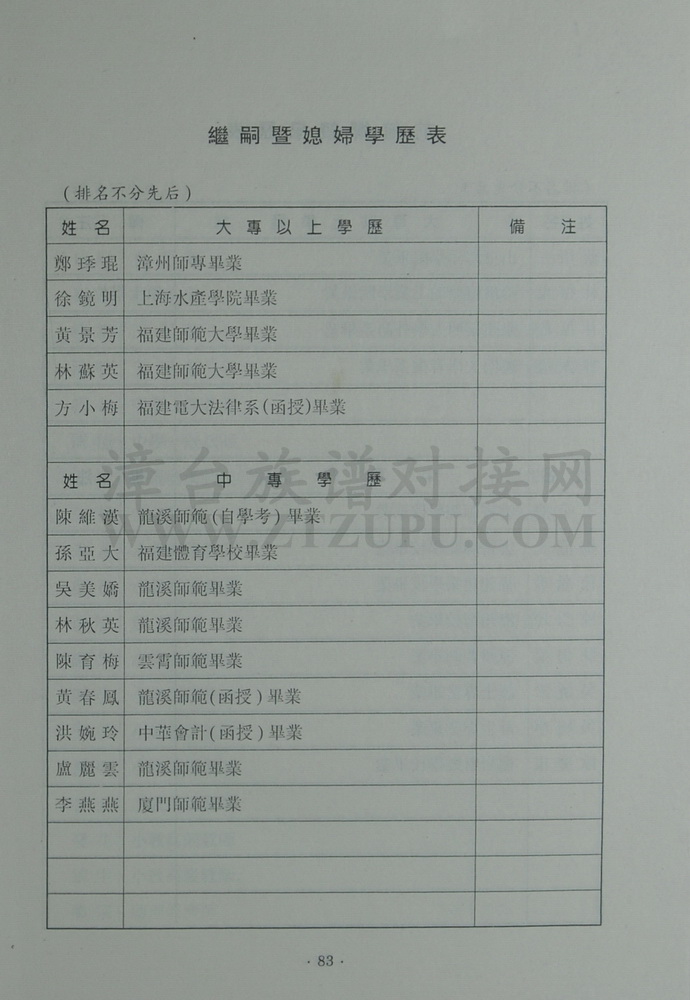 繼嗣暨媳婦學歷表
(排名不分先后)
姓名 大專以上學歷 備注
鄭琹琨 漳州師專畢業
徐鏡明 上海水產學院畢業
黃景芳 福建師範大學畢業
林蘇英 福建師範大學畢業
方小梅 福建電大法律系(函授)畢業
姓名 中專學歷
陳維漢 龍溪師範(自學考)畢業
孫亞大 福建體育學校畢業
吳美嬌 龍溪師範畢業
林秋英 龍溪師範畢業
陳育梅 雲霄師範畢業
黃春鳳 龍溪師範(函授)畢業
洪婉玲 中華會計(函授)畢業
盧麗雲 龍溪師範畢業
李燕燕 廈門師範畢業
·83·
漳台族谱对接网
WWW.ZTZUPU.COM